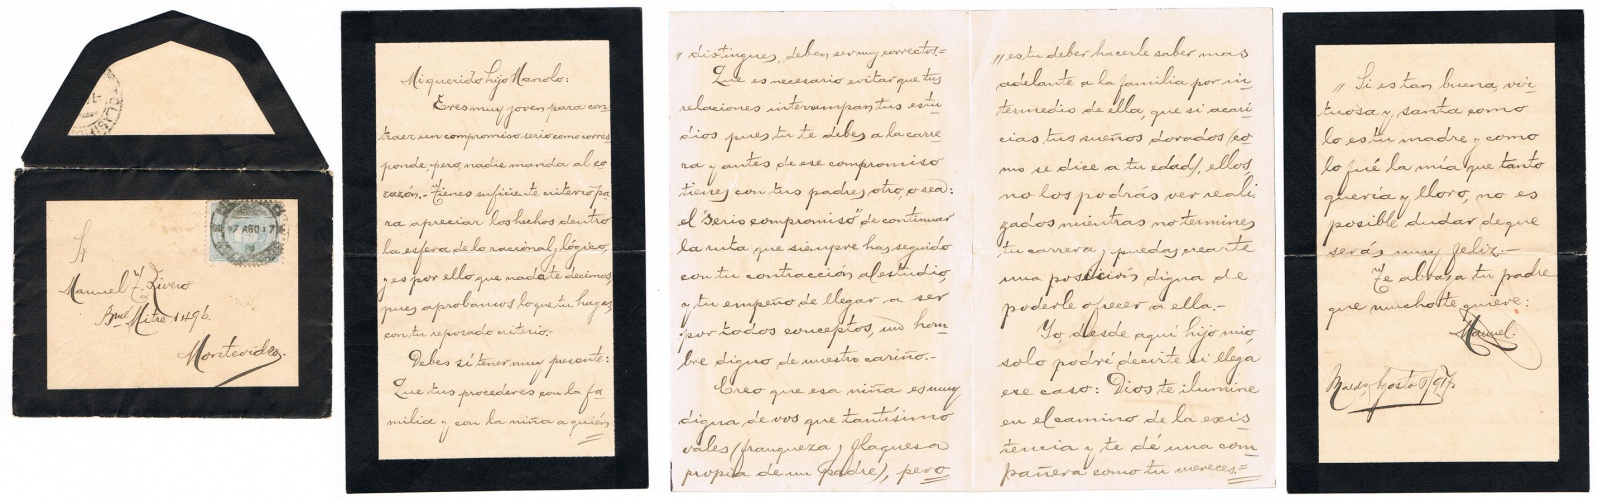 7 AGO 17
A
Manuel T. Rivero
Bmé Mitre 1496.
Montevideo.
Mi querido hijo Manolo:
Eres muy joven para con-
traer un compromiso serio como corres-
ponde, pero, nadie manda al co-
razón.- Tienes suficiente criterio pa-
ra apreciar los hechos dentro
la esfera de lo racional y lógico,
y es por ello que nada te decimos
pues aprobamos lo que tu hagas
con tu reposado criterio.-
Debes sí tener muy presente:
Que tus procederes con la fa-
milia y con la niña a quién
" distingues, deben ser muy correctos.=
Que es necesario evitar que tus
relaciones interrumpan tus estu-
dios pues tu te debes a la carre-
ra y antes de ese compromiso
tienes con tus padres otro, o sea:
el "serio compromiso" de continuar
la ruta que siempre has seguido
con tu contracción al estudio,
y tu empeño de llegar a ser
por todos conceptos, un hom-
bre digno de nuestro cariño.-
Creo que esa niña es muy
digna de vos que tantísimo
vales (franqueza y flaquesa
propia de un padre), pero
" es tu deber hacerle saber mas
adelante a la familia por in-
termedio de ella, que si acari-
cias tus sueños dorados (co-
mo se dice a tu edad) ellos,
no los podrás ver reali-
zados mientras no termines
tu carrera y puedas crearte
una posición digna de
poderle ofrecer a ella.-
Yo, desde aquí hijo mio,
solo podré decirte si llega
ese caso: Dios te ilumine
en el camino de la exis-
tencia y te dé una com-
pañera como tu mereces.=
" Si es tan buena, vir-
tuosa y santa como
lo es tu madre y como
lo fué la mía que tanto
quería y lloro, no es
posible dudar de que
serás muy feliz.-
Te abraza tu padre
que mucho te quiere:
Manuel.